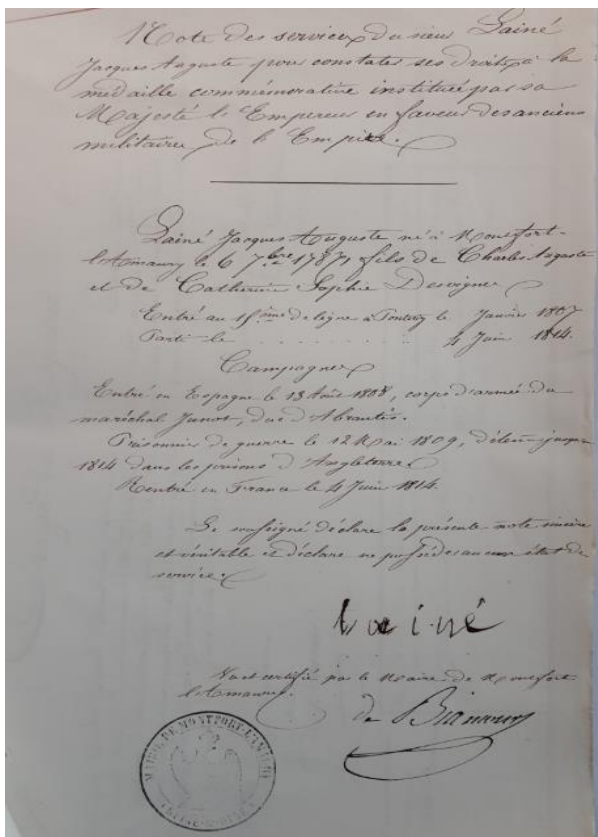 Note des services du sieur Lainé
Jacques Auguste pour constater ses droits à la
médaille commémorative instituée par sa
Majesté l'Empereur en faveur des anciens
militaires de l'Empire.
Lainé Jacques Auguste né à Montfort-
l'Amaury le 6 7bre 1787, fils de Charles Auguste
et de Catherine Sophie Desvignes
Entré au 15ème de ligne à Pontivy le Janvier 1807
Parti le . . . . . . . . 4 Juin 1814.
Campagnes
Entré en Espagne le 13 Août 1808, corps d'armée du
maréchal Junot, duc d'Abrantès.
Prisonnier de guerre le 12 Mai 1809, détenu jusqu'en
1814 dans les prisons d'Angleterre.
Rentré en France le 4 Juin 1814.
Le soussigné déclare la présente note sincère
et véritable et déclare ne posséder aucun état de
service.
Lainé
Vu et certifié par le Maire de Montfort
l'Amaury.
de
MAIRIE DE MONTFORT-L'AMAURY